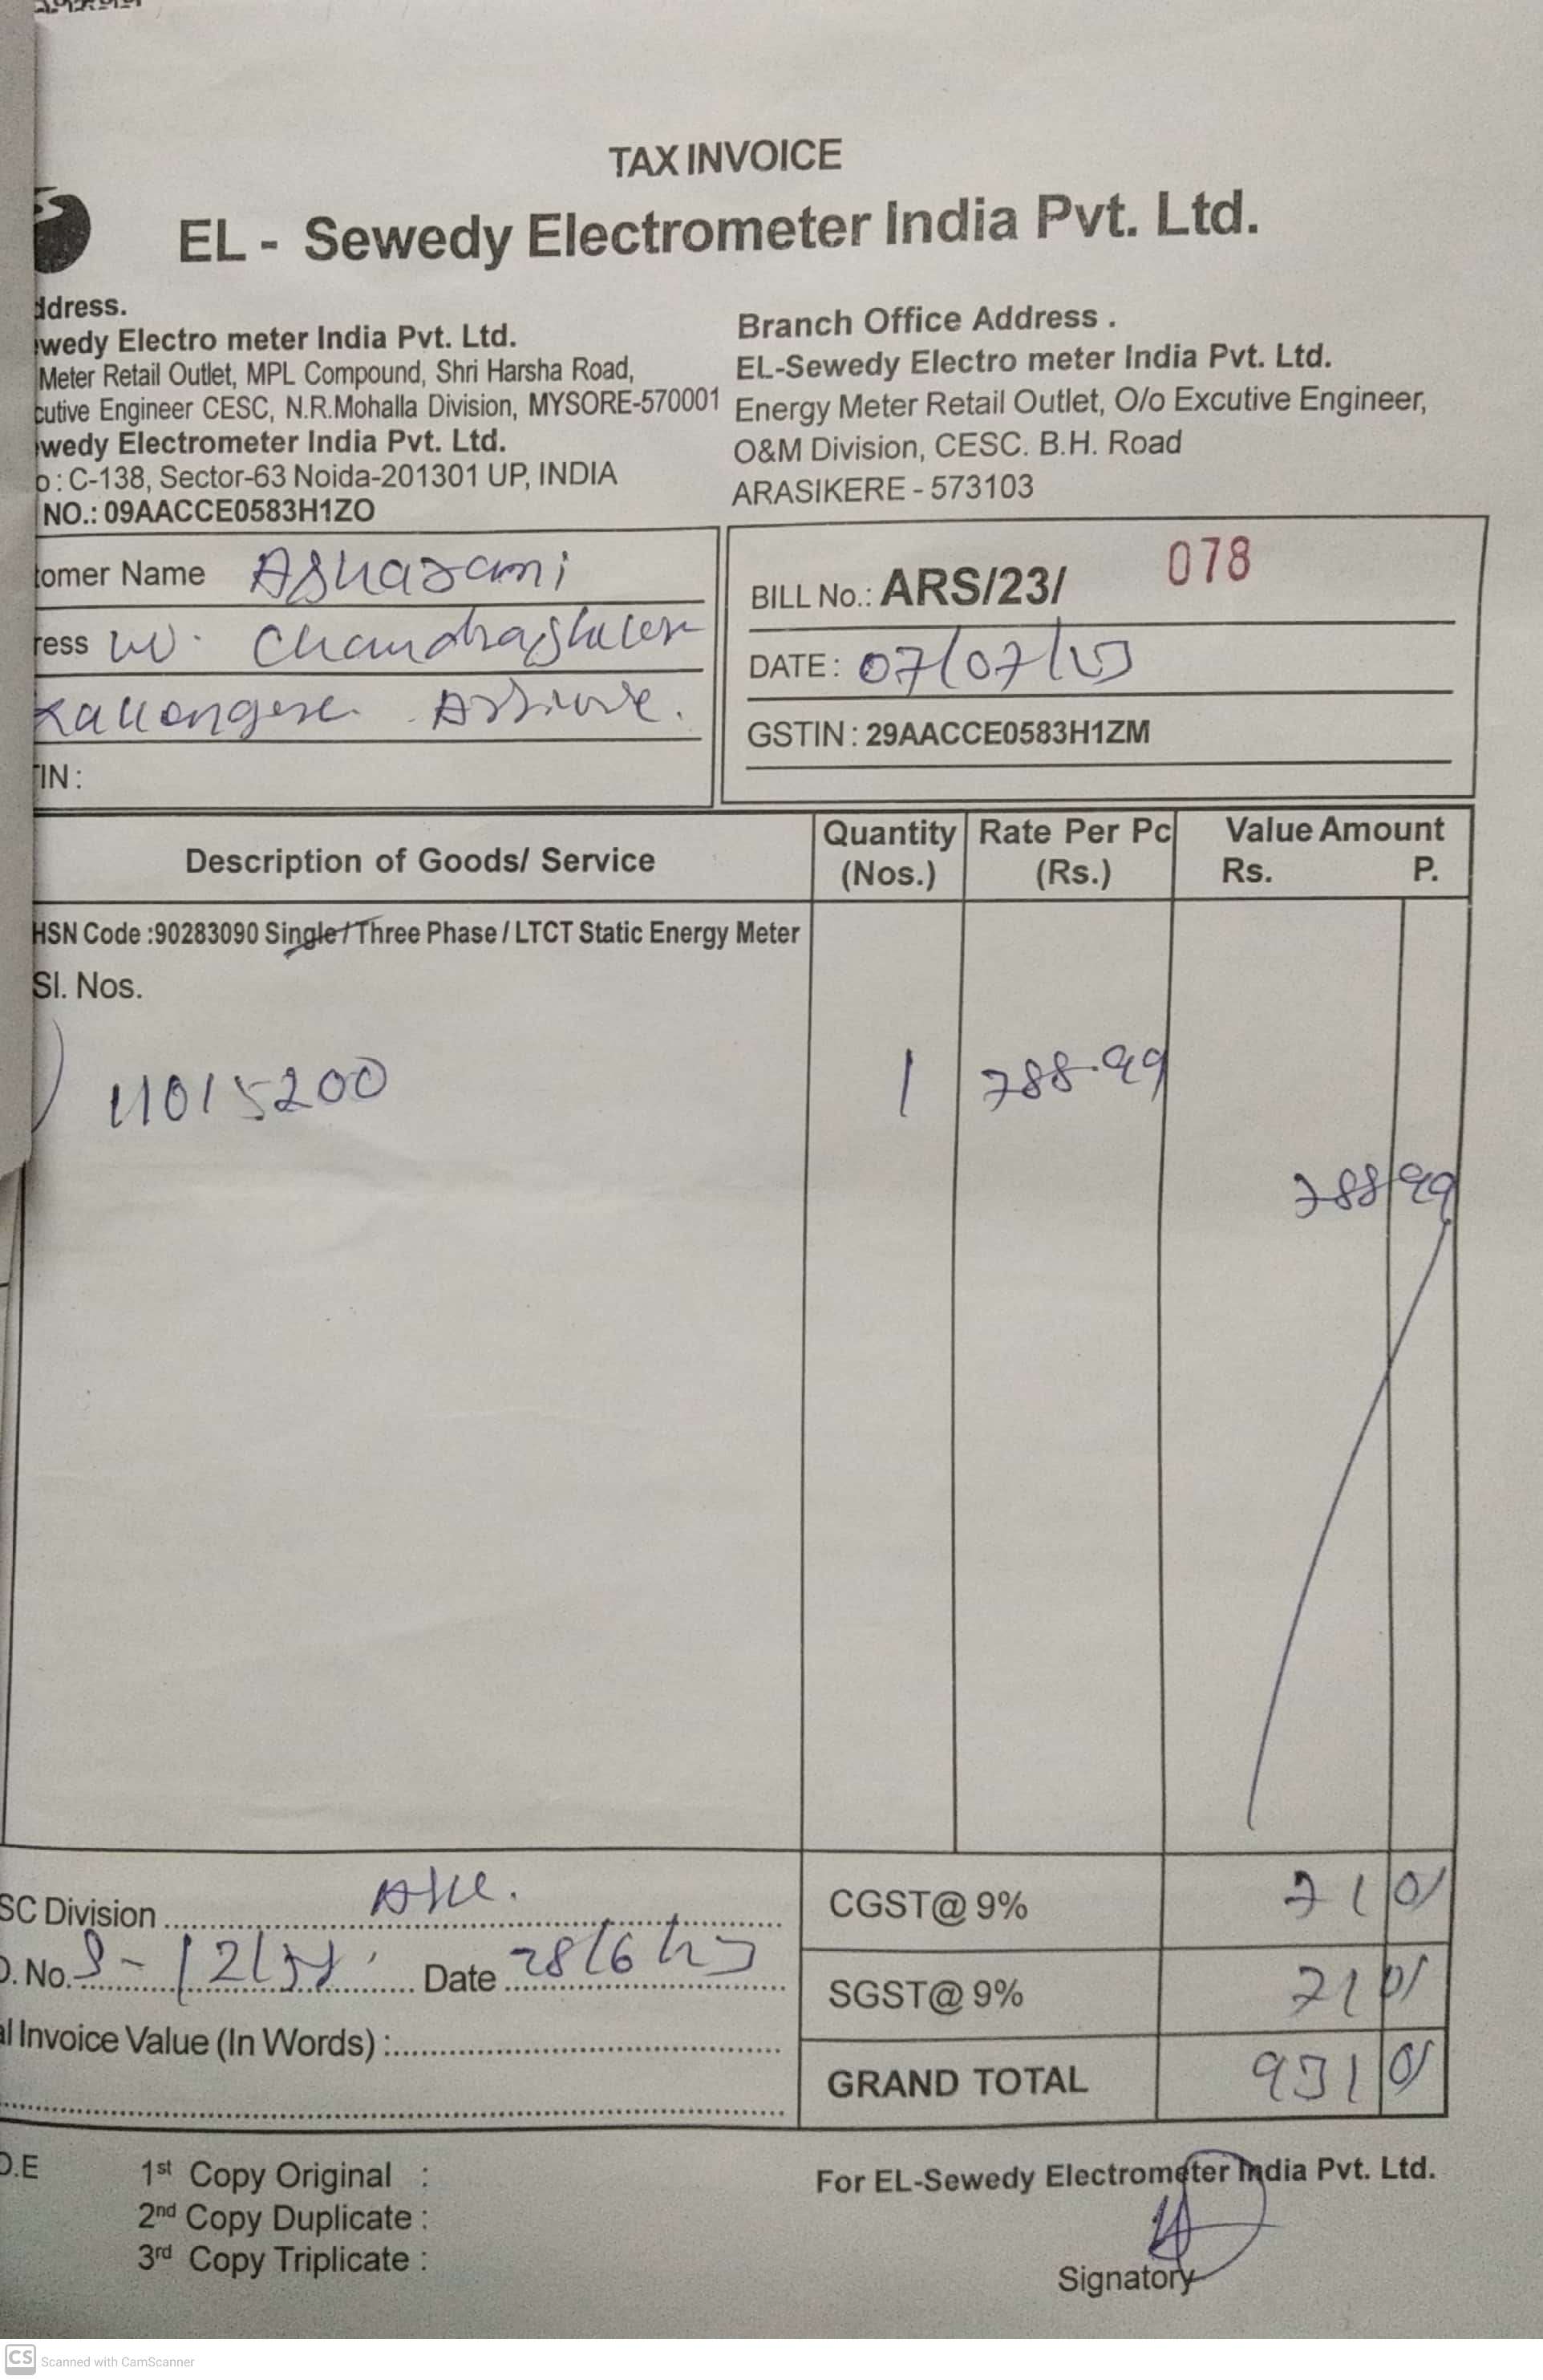 TAX INVOICE
EL - Sewedy Electrometer India Pvt. Ltd.
ddress.
wedy Electro meter India Pvt. Ltd.
Meter Retail Outlet, MPL Compound, Shri Harsha Road,
cutive Engineer CESC, N.R.Mohalla Division, MYSORE-570001
wedy Electrometer India Pvt. Ltd.
o : C-138, Sector-63 Noida-201301 UP, INDIA
NO.: 09AACCE0583H1ZO
Branch Office Address .
EL-Sewedy Electro meter India Pvt. Ltd.
Energy Meter Retail Outlet, O/o Excutive Engineer,
O&M Division, CESC. B.H. Road
ARASIKERE - 573103
tomer Name Asharani
ress W. Chandrashaker
TIN :
BILL No.: ARS/23/ 078
DATE : 07/07/23
GSTIN : 29AACCE0583H1ZM
Description of Goods/ Service Quantity (Nos.) Rate Per Pc (Rs.) Value Amount Rs. P.
HSN Code :90283090 Single / Three Phase / LTCT Static Energy Meter
Sl. Nos.
11015200 1 788.99
788 99
SC Division
CGST@ 9% 71 01
O. No. Date 28/6/23
SGST@ 9% 71 01
al Invoice Value (In Words) :
GRAND TOTAL 931 01
O.E 1st Copy Original :
2nd Copy Duplicate :
3rd Copy Triplicate :
For EL-Sewedy Electrometer India Pvt. Ltd.
Signatory
CS Scanned with CamScanner